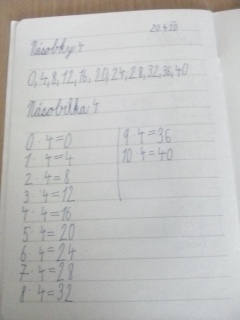 20.4.20
Násobky 4
0,4,8,12,16,20,24,28,32,36,40
Násobilka 4
0 · 4=0
1 · 4=4
2 · 4=8
3 · 4=12
4 · 4=16
5 · 4=20
6 · 4=24
7 · 4=28
8 · 4=32
9 · 4=36
10 · 4=40